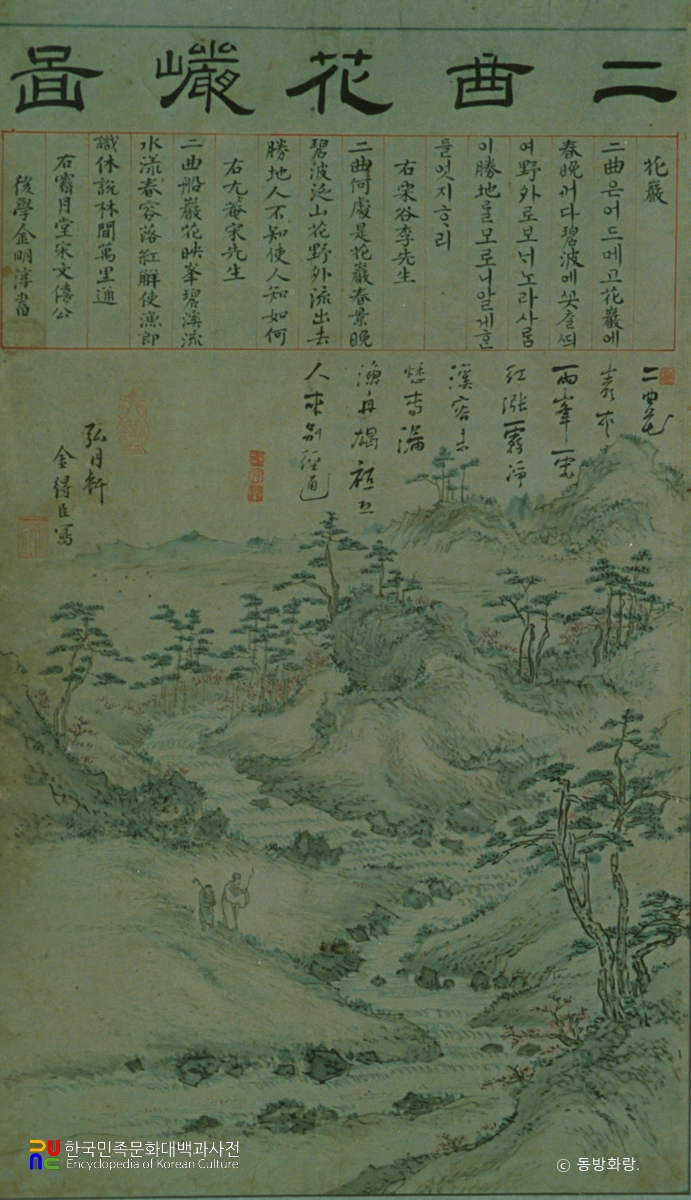 二曲花巗圖
花巖
二曲은어드메고花巖에
春晚커다碧波에곳츨씌
여野外로보너노라사람
이勝地를모로니알게흔
들엇지ᄒᆞ리
右栗谷李先生
二曲何處是花巖春景晚
碧波泛山花野外流出去
勝地人不知使人知如何
右尤菴宋先生
二曲船巖花映峯碧溪流
水漾春容落紅解使漁郎
識休說林間萬里通
右霽月堂宋文僖公
後學金明淳書
二曲花
兩峯
紅漲霧淨
溪容
漁舟
人來別徑通
弘月軒
金得臣寫
한국민족문화대백과사전
Encyclopedia of Korean Culture
© 동방화랑.